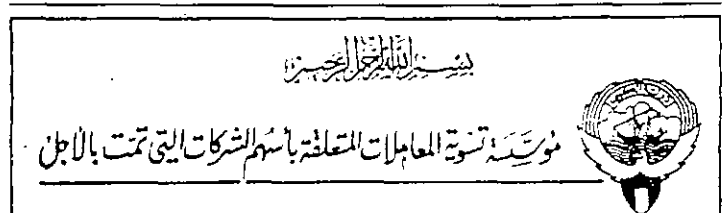 بسم الله الرحمن الرحيم
مؤسسة تسوية المعاملات المتعلقة بأسهم الشركات التي تمت بالأجل